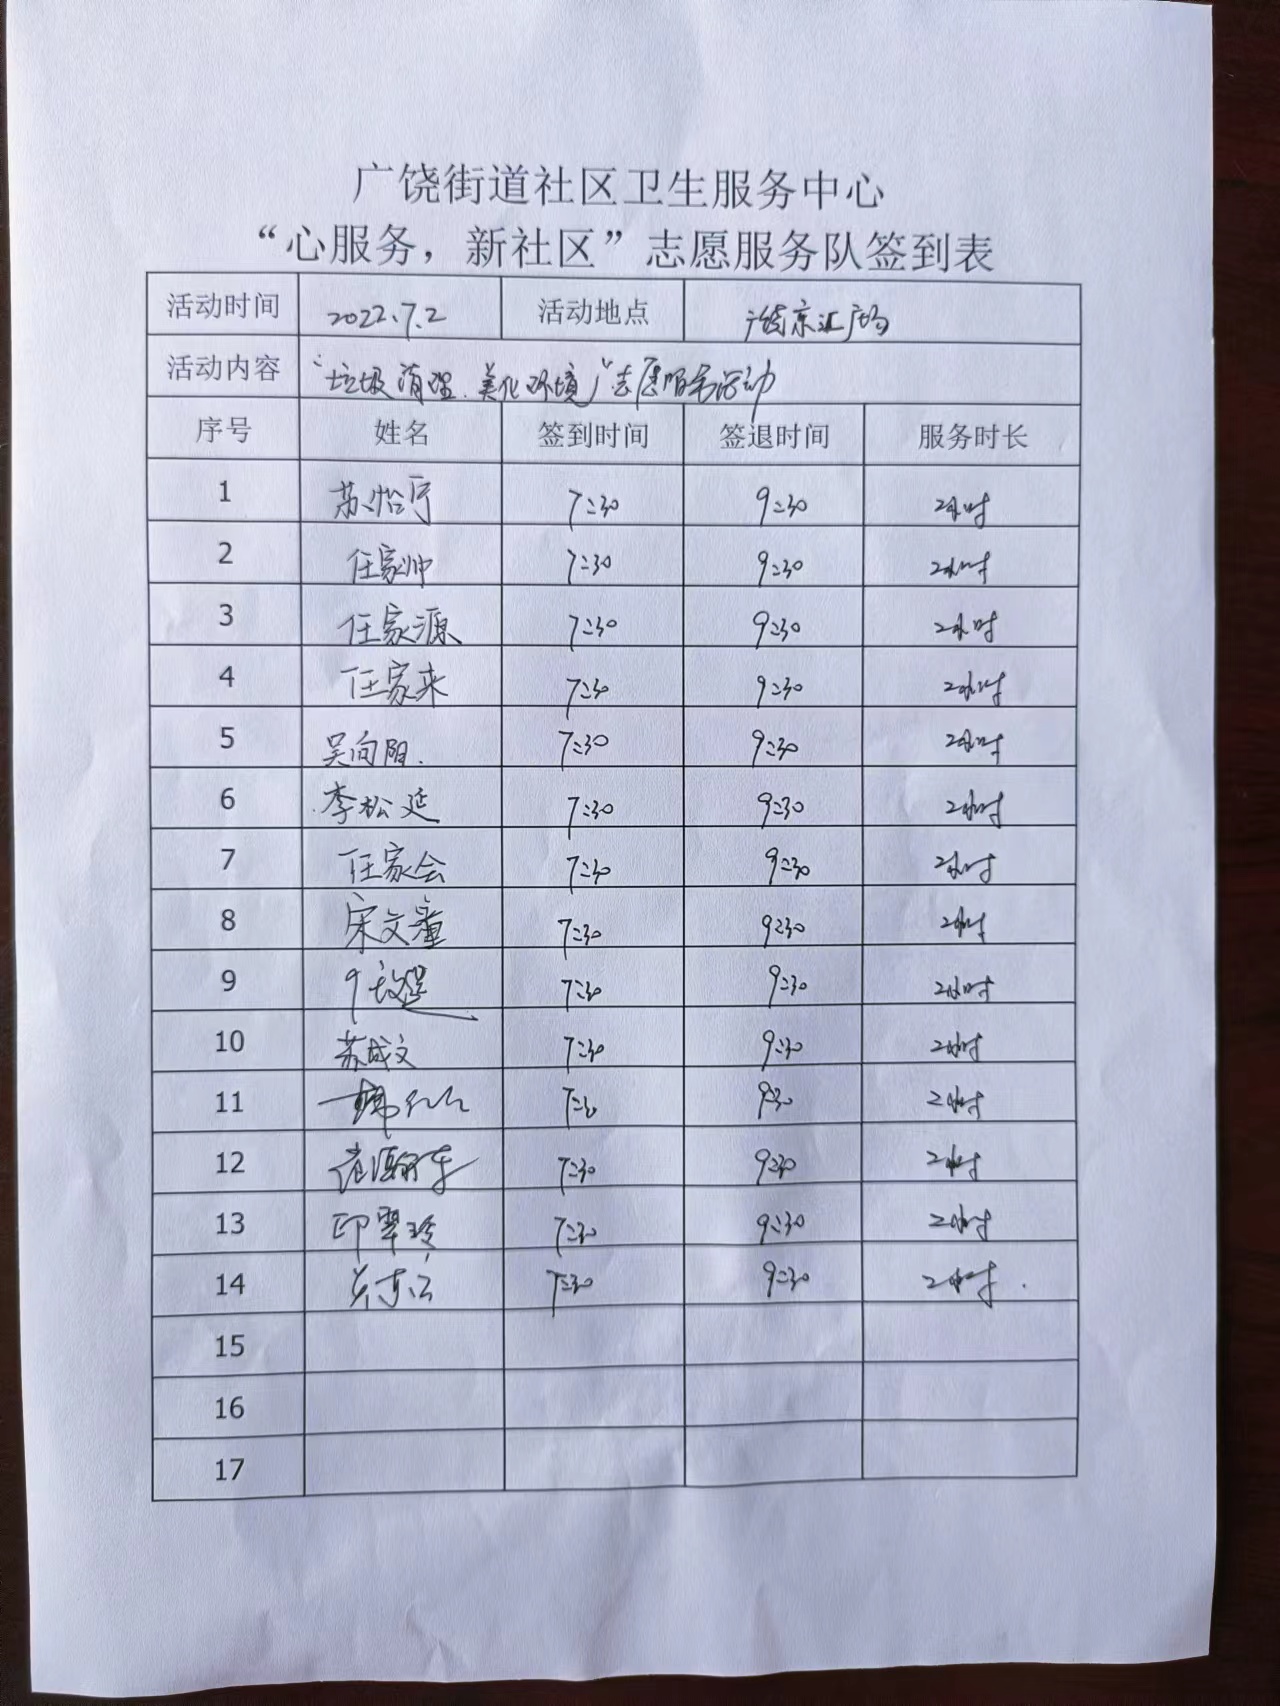 广饶街道社区卫生服务中心
“心服务，新社区”志愿服务队签到表
活动时间 2022.7.2 活动地点 广饶京汇广场
活动内容 “垃圾清理.美化环境”志愿服务活动
序号 姓名 签到时间 签退时间 服务时长
1 苏怡宁 7:30 9:30 2小时
2 任家帅 7:30 9:30 2小时
3 任家源 7:30 9:30 2小时
4 任家来 7:30 9:30 2小时
5 吴向阳. 7:30 9:30 2小时
6 李松延 7:30 9:30 2小时
7 任家会 7:30 9:30 2小时
8 宋文 7:30 9:30 2小时
9 7:30 9:30 2小时
10 苏成文 7:30 9:30 2小时
11 韩 7:30 9:30 2小时
12 7:30 9:30 2小时
13 印翠玲 7:30 9:30 2小时
14 7:30 9:30 2小时.
15
16
17